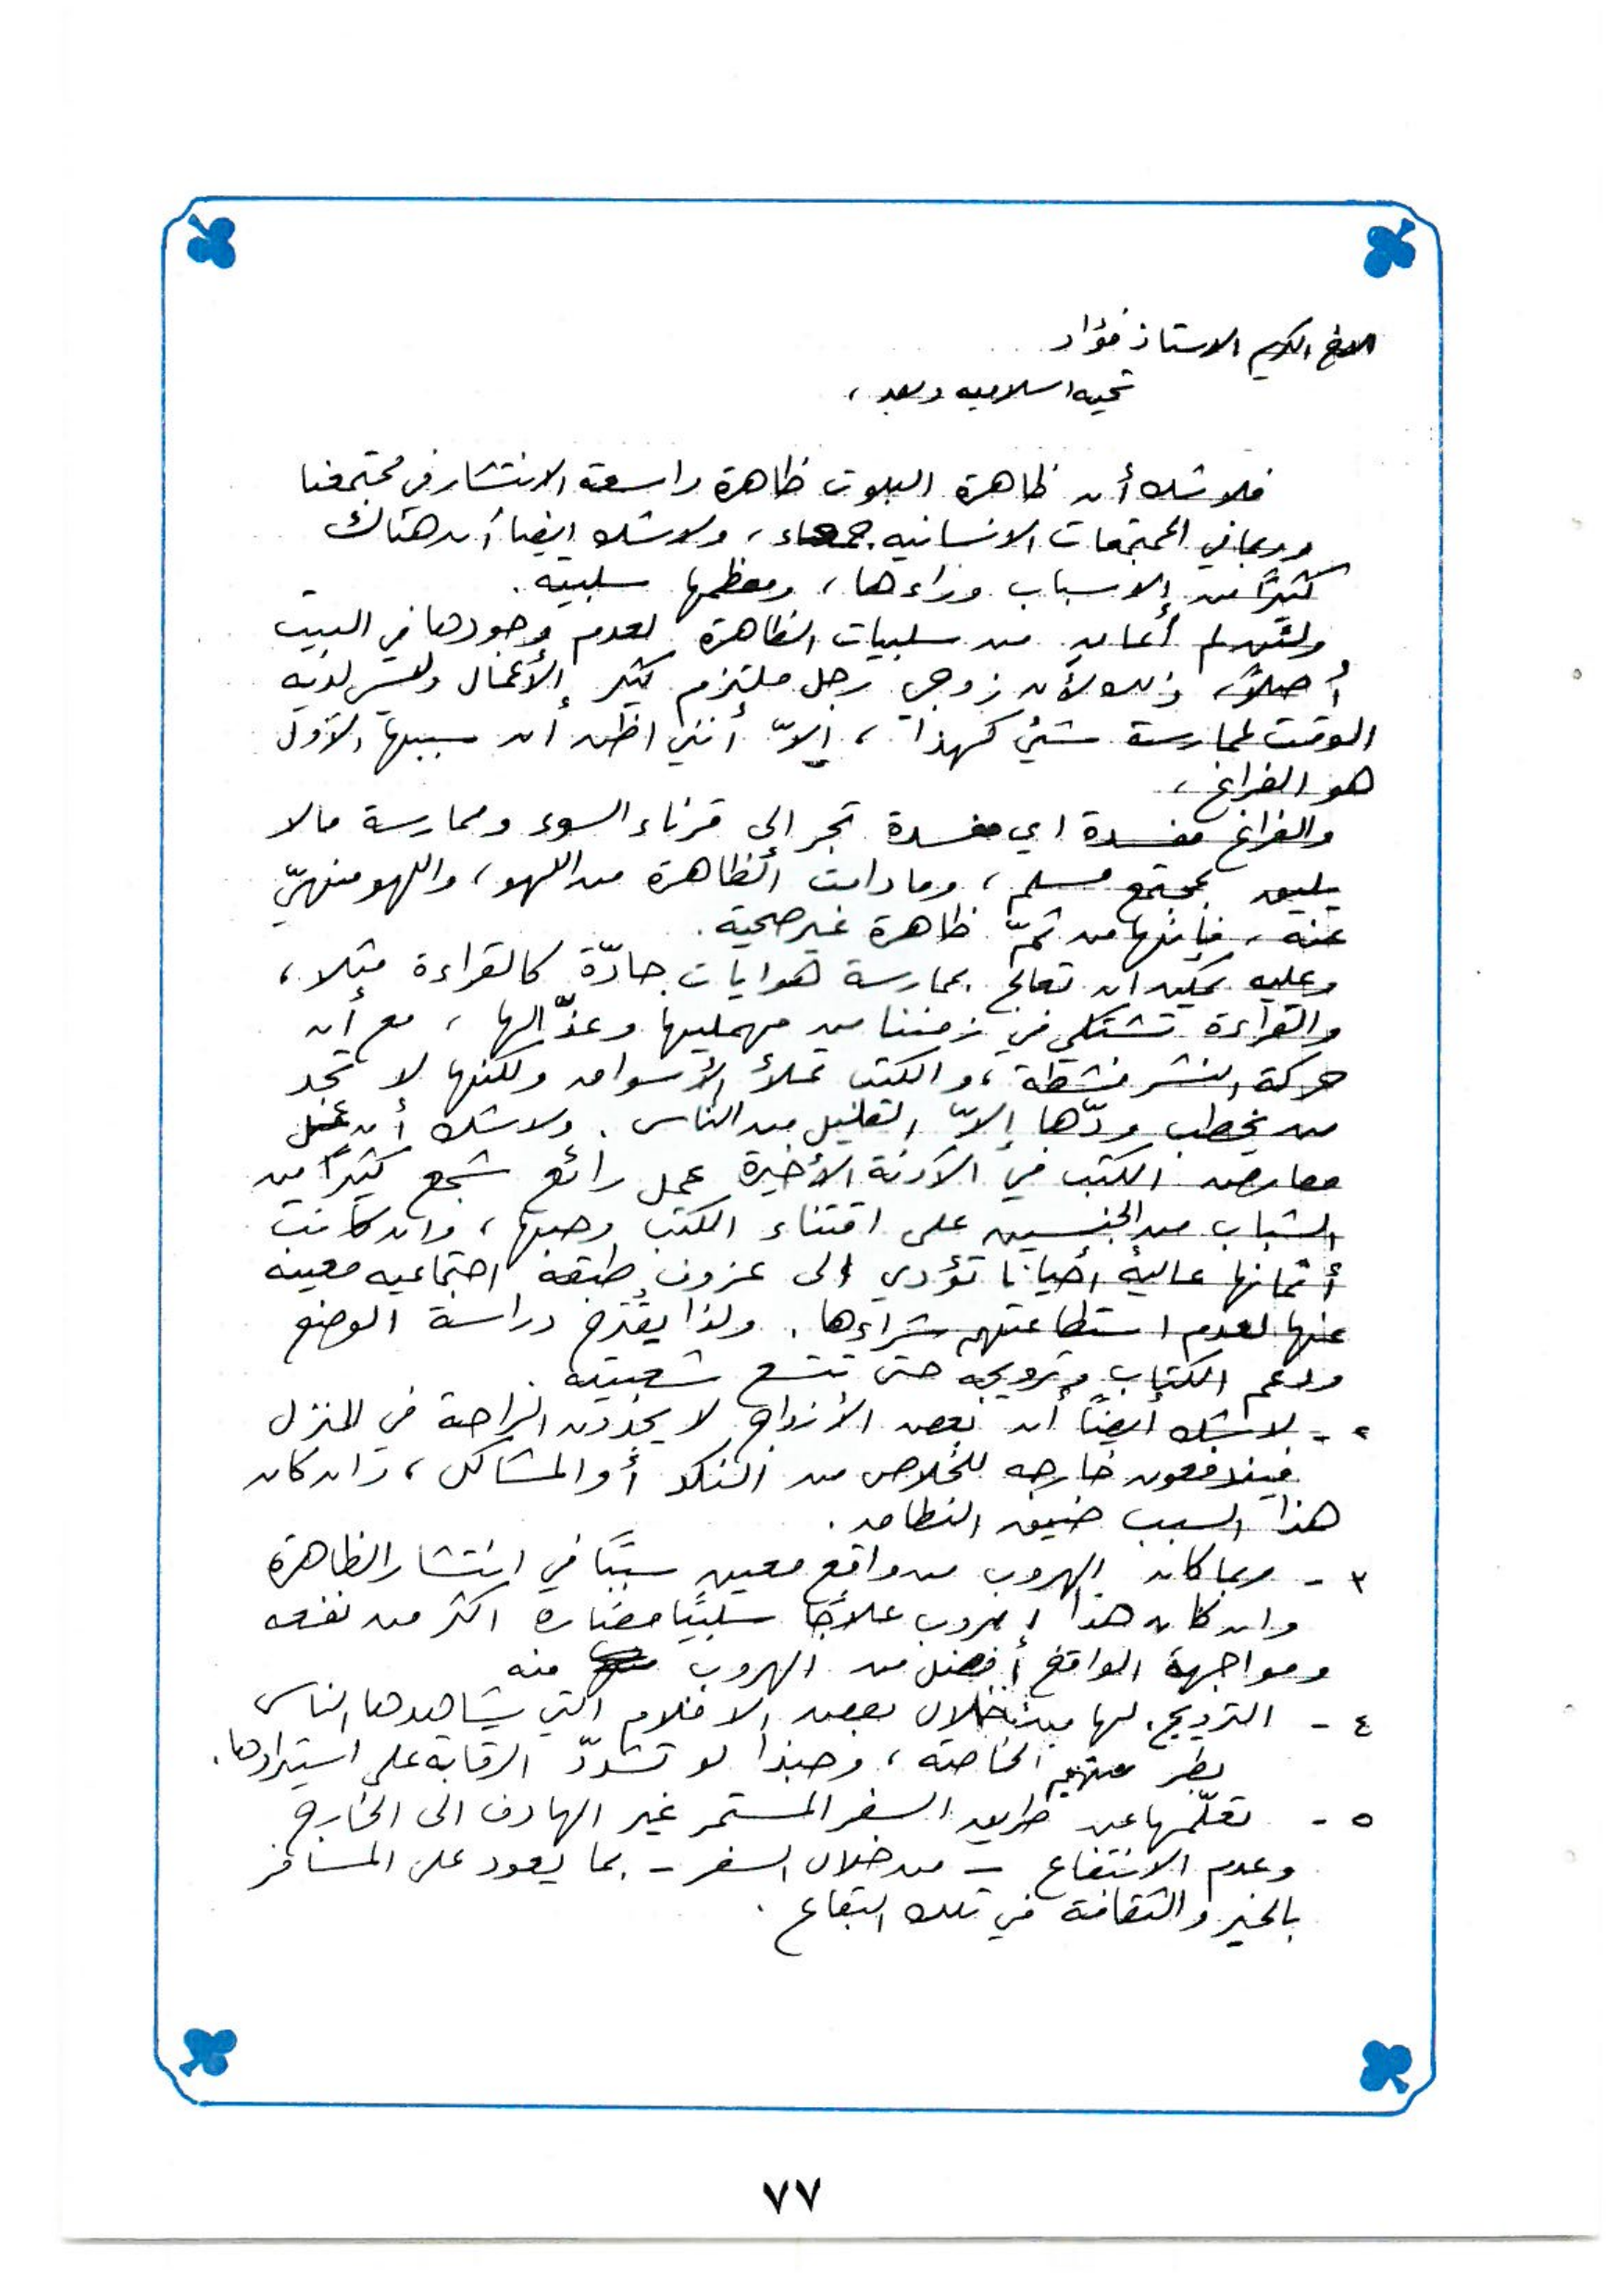 الاخ الكريم الاستاذ فؤاد
تحيه اسلاميه وبعد ،
فلا شك أن ظاهرة البلوت ظاهرة واسعة الانتشار في مجتمعنا
وربما في المجتمعات الانسانيه جمعاء ، ولا شك ايضا أن هناك
كثيرًا من الاسباب وراءها ، ومعظمها سلبية .
ولئن لم أعان من سلبيات الظاهرة لعدم وجودها في البيت
أصلاً ، وذلك لأن زوجي رجل ملتزم كثير الأعمال وليس لديه
الوقت لممارسة شيء كهذا ، إلاّ أنني اظن ان سببها الأول
هو الفراغ ،
والفراغ مفسدة اي مفسدة تجر الى قرناء السوء وممارسة مالا
يليق بمجتمع مسلم ، وما دامت الظاهرة من اللهو ، واللهو منهيّ
عنه ، فإنها من ثمّ ظاهرة غير صحية .
وعليه يمكن ان تعالج بممارسة هوايات جادّة كالقراءة مثلا ،
والقراءة تشتكي في زمننا من مهمليها وعذّالها ، مع أن
حركة النشر نشطة ، والكتب تملأ الأسواق ولكنها لا تجد
من يخطب ودّها إلاّ القليل من الناس . ولا شك أن عمل
معارض الكتب في الآونة الأخيرة عمل رائع شجع كثيرًا من
الشباب من الجنسين على اقتناء الكتب وحبها ، وان كانت
أثمانها عالية أحيانا تؤدي الى عزوف طبقة اجتماعيه معينه
عنها لعدم استطاعتهم شراءها . ولذا يقترح دراسة الوضع
ودعم الكتاب وترويجه حتى تتسع شعبيته
٢ - لا شك أيضًا أن بعض الأزواج لا يجدون الراحة في المنزل
فيندفعون خارجه للخلاص من النكد أو المشاكل ، وان كان
هذا السبب ضيق النطاق .
٣ - ربما كان الهروب من واقع معين سببًا في انتشار الظاهرة
وان كان هذا الهروب علاجًا سلبيًا مضاره اكثر من نفعه
ومواجهة الواقع أفضل من الهروب منه
٤ - الترويج لها من خلال بعض الافلام التي يشاهدها الناس
الخاصة ، وحبذا لو تشددّ الرقابة على استيرادها .
٥ - تعلّمها عن طريق السفر المستمر غير الهادف الى الخارج
وعدم الانتفاع - من خلال السفر - بما يعود على المسافر
بالخير والثقافة في تلك البقاع .
٧٧